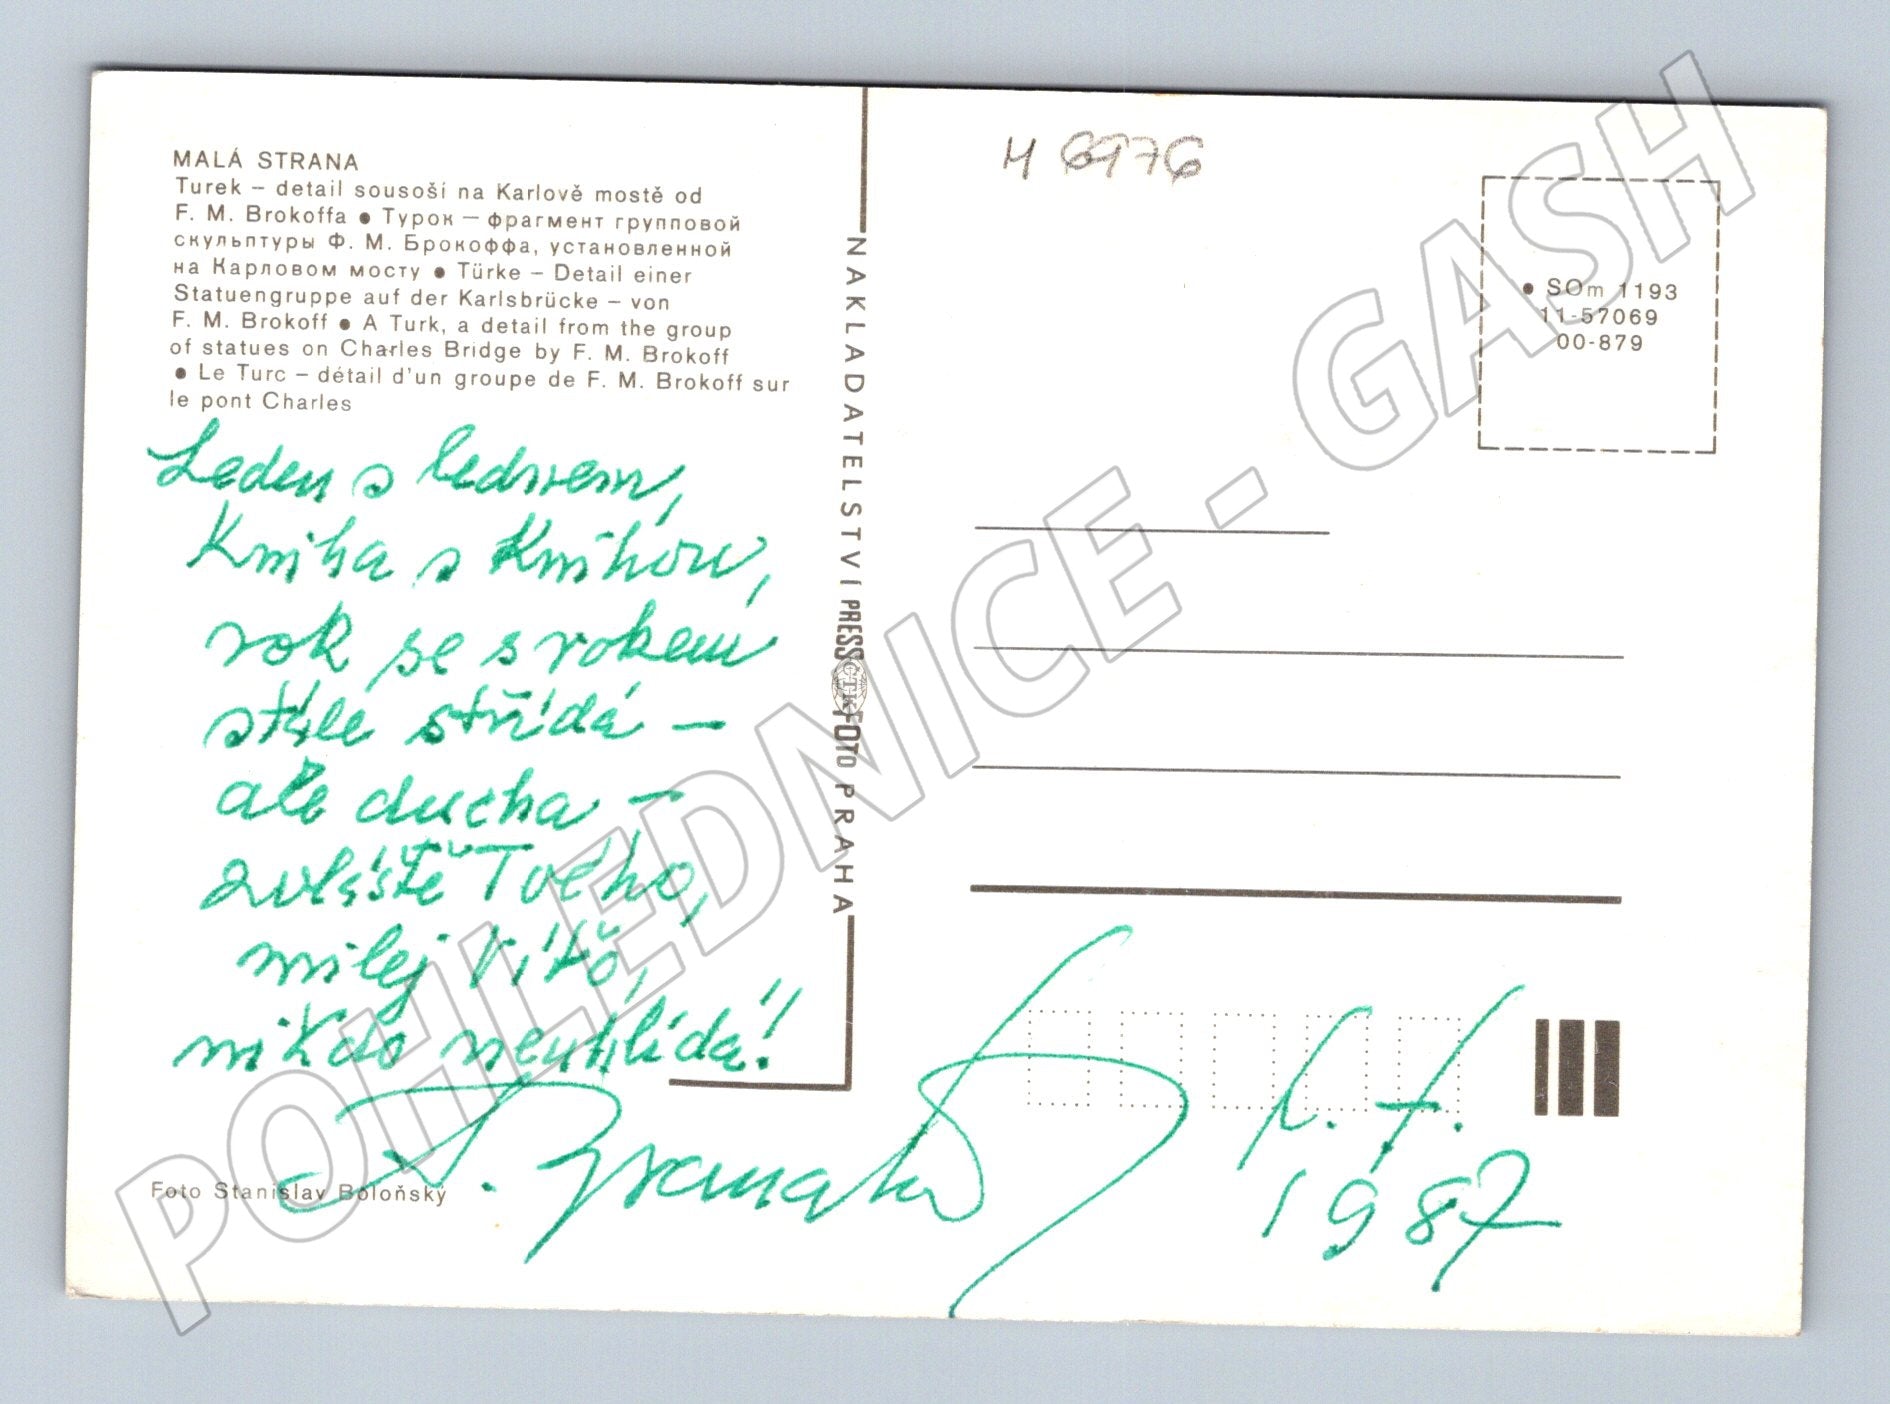 MALÁ STRANA
Turek – detail sousoší na Karlově mostě od
F. M. Brokoffa ● Турок — фрагмент групповой
скульптуры Ф. М. Брокоффа, установленной
на Карловом мосту ● Türke – Detail einer
Statuengruppe auf der Karlsbrücke – von
F. M. Brokoff ● A Turk, a detail from the group
of statues on Charles Bridge by F. M. Brokoff
● Le Turc – détail d'un groupe de F. M. Brokoff sur
le pont Charles
Leden s lednem,
Kniha s Knihou,
rok se s rokem
stále střídá –
ale ducha –
zvláště Tvého,
milej Víťo,
nikdo neuhlídá!
Foto Stanislav Boloňský
NAKLADATELSTVÍ PRESSFOTO PRAHA
ČTK
6976
● SOm 1193
11-57069
00-879
P. F.
1987
POHLEDNICE - GASH